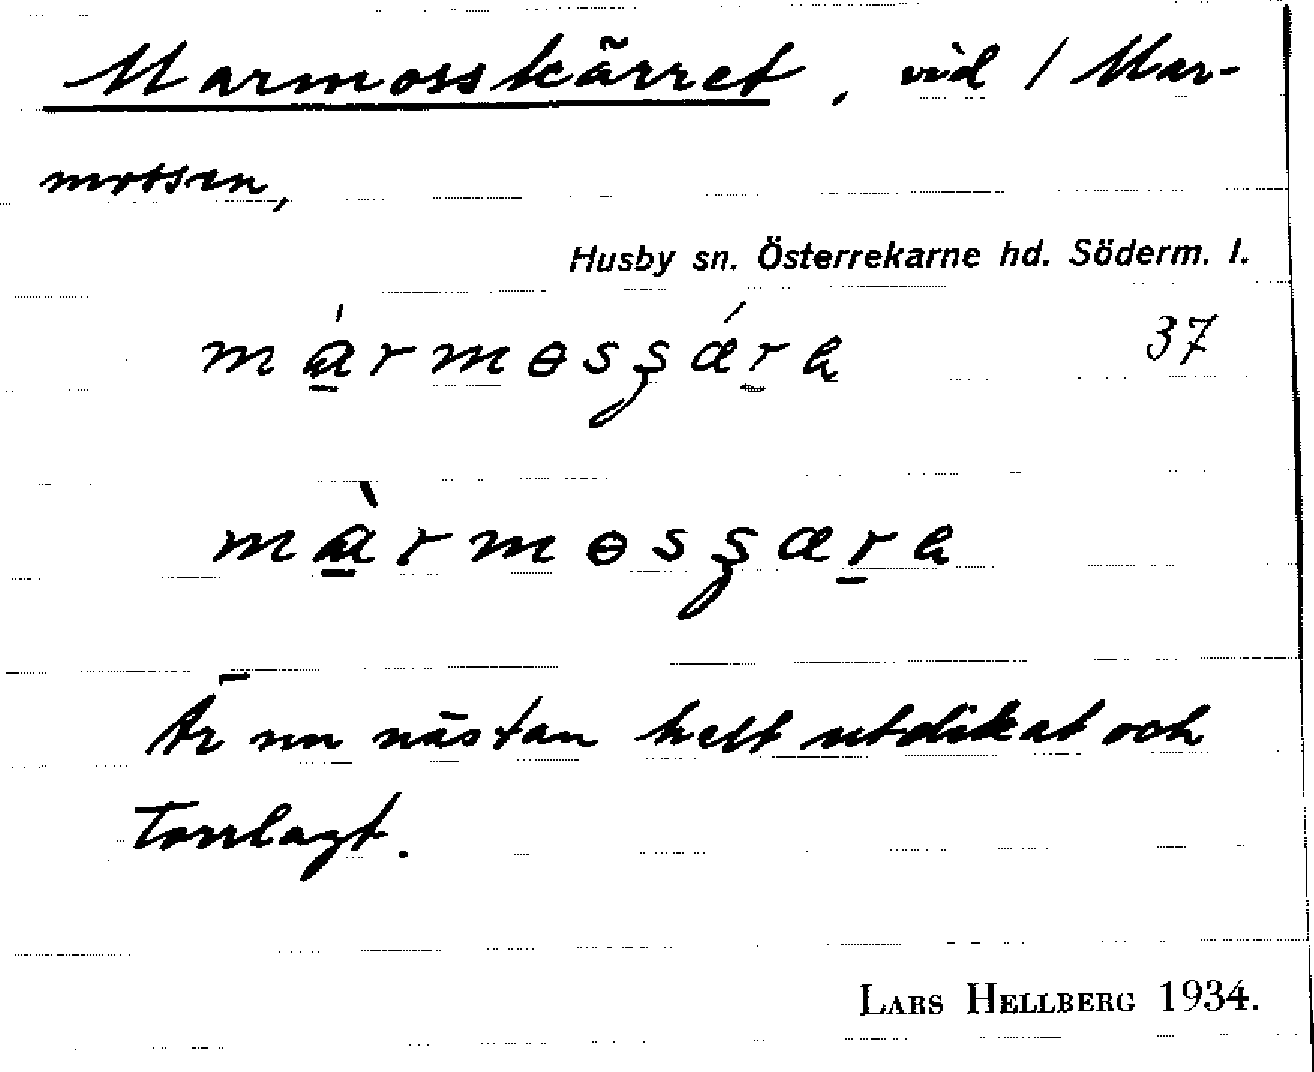 Marmosskärret, vid / Mar-
mossen,
Husby sn. Österrekarne hd. Söderm. l.
màrmɵsʂǽra 37
màrmɵsʂæra
Är nu nästan helt utdikat och
torrlagt.
LARS HELLBERG 1934.